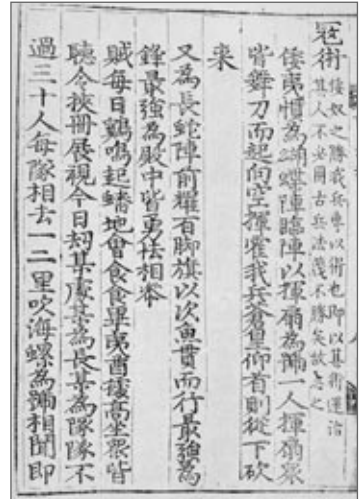 寇術 倭奴之勝我兵專以術也即以其術還治
其人不必用古兵法蔑不勝矣故志之
倭夷慣為蝴蝶陣臨陣以揮扇為號一人揮扇眾
皆舞刀而起向空揮霍我兵蒼皇仰首則從下砍
来
又為長蛇陣前耀百脚旗以次魚貫而行最強為
鋒最強為殿中皆勇怯相參
賊每日鷄鳴起蟠地會食食畢夷酋據高坐眾皆
聽令挾冊展視今日刼某處某為長某為隊隊不
過三十人每隊相去一二里吹海螺為號相聞即